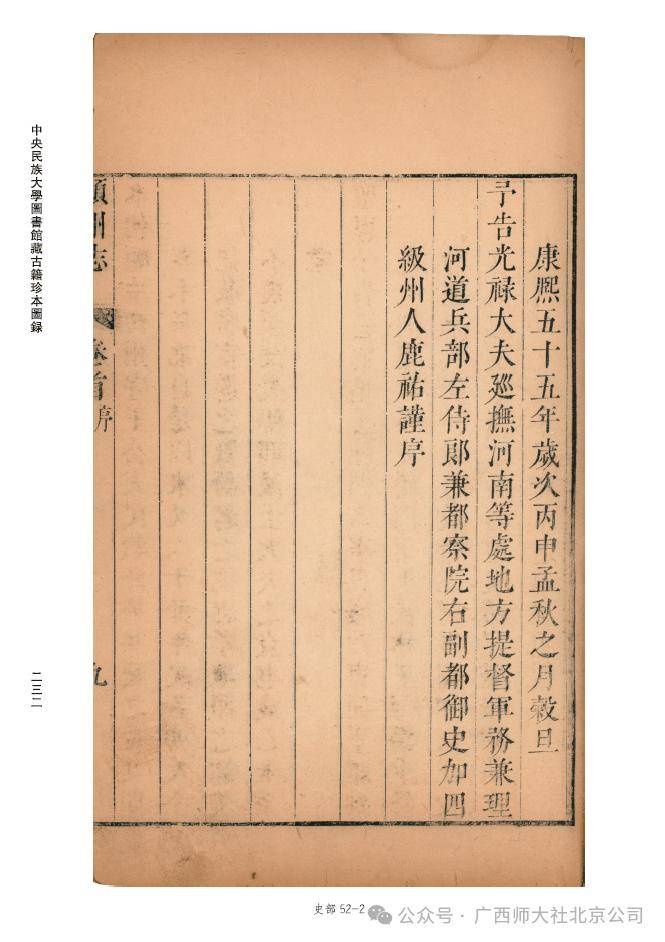 中央民族大學圖書館藏古籍珍本圖録
二三二
康熙五十五年歲次丙申孟秋之月穀旦
予告光禄大夫廵撫河南等處地方提督軍務兼理
河道兵部左侍郎兼都察院右副都御史加四
級州人鹿祐謹序
潁州志
卷首
序
九
史部 52-2
公众号 · 广西师大社北京公司